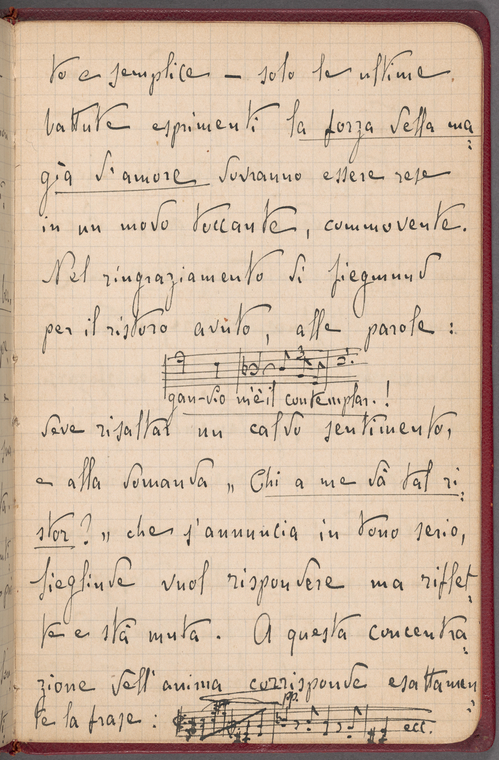 to e semplice – solo le ultime
battute esprimenti la forza della ma=
gia d'amore dovranno essere rese
in un modo toccante, commovente.
Nel ringraziamento di Siegmund
per il ristoro avuto, alle parole:
gau-dio m'è il contemplar.!
deve risaltar un caldo sentimento,
e alla domanda „Chi a me dà tal ri=
stor?„ che s'annuncia in tono serio,
Sieglinde vuol rispondere ma riflet=
te e stà muta. A questa concentra=
zione dell'anima corrisponde esattamen=
te la frase: ecc.